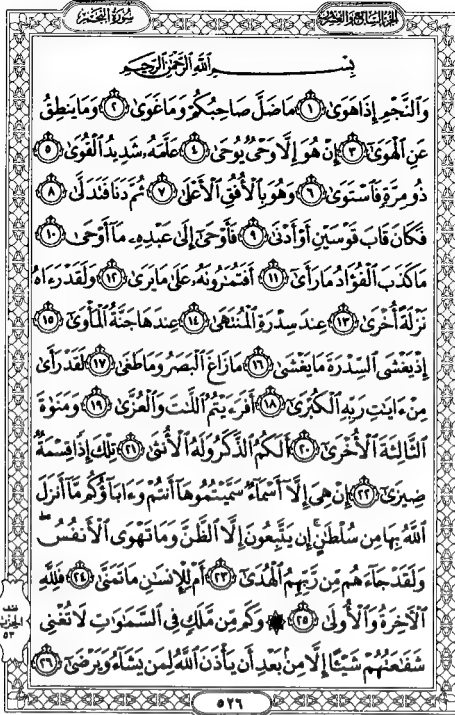 سُورَةُ النَّجْمِ
الجُزءُ السَّابِعُ وَالعِشرُونَ
بِسْمِ ٱللَّهِ ٱلرَّحْمَٰنِ ٱلرَّحِيمِ
وَٱلنَّجْمِ إِذَا هَوَىٰ ١ مَا ضَلَّ صَاحِبُكُمْ وَمَا غَوَىٰ ٢ وَمَا يَنطِقُ
عَنِ ٱلْهَوَىٰ ٣ إِنْ هُوَ إِلَّا وَحْىٌ يُوحَىٰ ٤ عَلَّمَهُۥ شَدِيدُ ٱلْقُوَىٰ ٥
ذُو مِرَّةٍ فَٱسْتَوَىٰ ٦ وَهُوَ بِٱلْأُفُقِ ٱلْأَعْلَىٰ ٧ ثُمَّ دَنَا فَتَدَلَّىٰ ٨
فَكَانَ قَابَ قَوْسَيْنِ أَوْ أَدْنَىٰ ٩ فَأَوْحَىٰٓ إِلَىٰ عَبْدِهِۦ مَآ أَوْحَىٰ ١٠
مَا كَذَبَ ٱلْفُؤَادُ مَا رَأَىٰٓ ١١ أَفَتُمَٰرُونَهُۥ عَلَىٰ مَا يَرَىٰ ١٢ وَلَقَدْ رَءَاهُ
نَزْلَةً أُخْرَىٰ ١٣ عِندَ سِدْرَةِ ٱلْمُنتَهَىٰ ١٤ عِندَهَا جَنَّةُ ٱلْمَأْوَىٰٓ ١٥
إِذْ يَغْشَى ٱلسِّدْرَةَ مَا يَغْشَىٰ ١٦ مَا زَاغَ ٱلْبَصَرُ وَمَا طَغَىٰ ١٧ لَقَدْ رَأَىٰ
مِنْ ءَايَٰتِ رَبِّهِ ٱلْكُبْرَىٰٓ ١٨ أَفَرَءَيْتُمُ ٱللَّٰتَ وَٱلْعُزَّىٰ ١٩ وَمَنَوٰةَ
ٱلثَّالِثَةَ ٱلْأُخْرَىٰٓ ٢٠ أَلَكُمُ ٱلذَّكَرُ وَلَهُ ٱلْأُنثَىٰ ٢١ تِلْكَ إِذًا قِسْمَةٌ
ضِيزَىٰٓ ٢٢ إِنْ هِىَ إِلَّآ أَسْمَآءٌ سَمَّيْتُمُوهَآ أَنتُمْ وَءَابَآؤُكُم مَّآ أَنزَلَ
ٱللَّهُ بِهَا مِن سُلْطَٰنٍ ۚ إِن يَتَّبِعُونَ إِلَّا ٱلظَّنَّ وَمَا تَهْوَى ٱلْأَنفُسُ ۖ
وَلَقَدْ جَآءَهُم مِّن رَّبِّهِمُ ٱلْهُدَىٰٓ ٢٣ أَمْ لِلْإِنسَٰنِ مَا تَمَنَّىٰ ٢٤ فَلِلَّهِ
ٱلْءَاخِرَةُ وَٱلْأُولَىٰ ٢٥ ۞ وَكَم مِّن مَّلَكٍ فِى ٱلسَّمَٰوَٰتِ لَا تُغْنِى
شَفَٰعَتُهُمْ شَيْـًٔا إِلَّا مِنۢ بَعْدِ أَن يَأْذَنَ ٱللَّهُ لِمَن يَشَآءُ وَيَرْضَىٰٓ ٢٦
نصف
الحزب
٥٣
٥٢٦